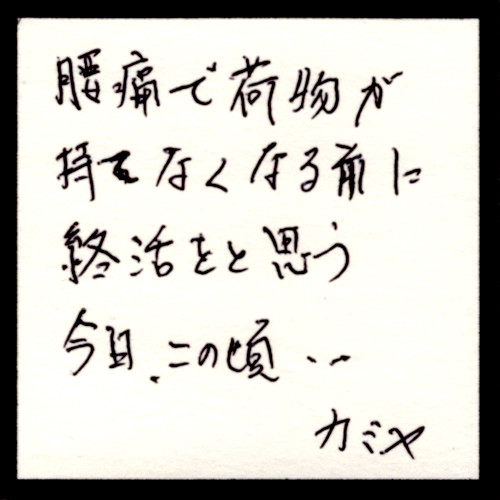 腰痛で荷物が
持てなくなる前に
終活をと思う
今日、この頃…
カミヤ